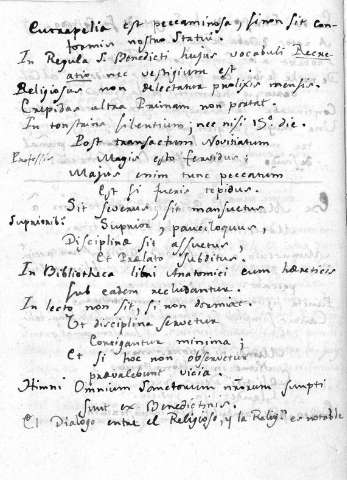 Eutrapelia est peccaminosa, si non sit con-
formis nostro Statui.
In Regula S. Benedicti hujus vocabuli Recre-
atio, nec vestigium est.
Religiosus non delectatur prolixis mensis.
Crepidas ultra Primam non portat.
In tonstrina silentium; nec nisi 15º. die.
Post transactum Novitiatum
Professis Magis esto fervidus;
Majus enim tunc peccatum
Est si fueris tepidus.
Sit severus, sit mansuetus
Superiorib. Superior, pauciloquus,
Disciplinæ sit assuetus,
Et Prælato subditus.
In Bibliotheca libri Anatomici cum hæreticis
sub eadem recludantur.
In lecto non sit, si non dormiat.
Ut disciplina servetur
Corrigantur minima;
Et si hoc non observetur
prævalebunt vicia.
Himni Omnium Sanctorum nrorum sumpti
sunt ex Benedictinis.
El Dialogo entre el Religioso, y la Relig.n es notable